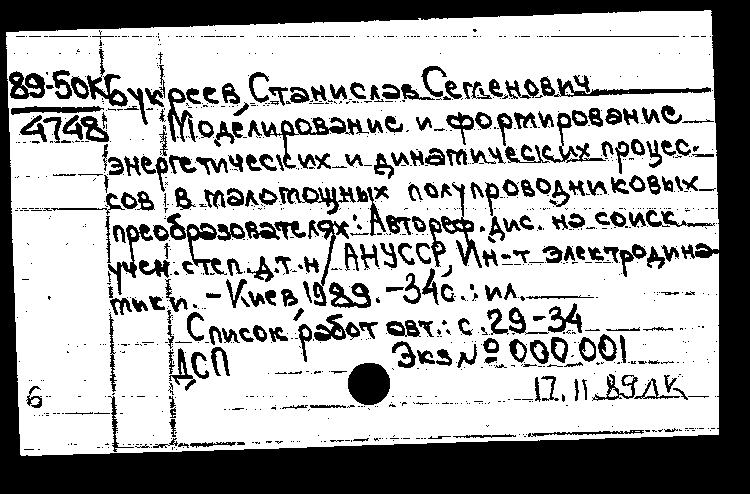 89-50К Букреев, Станислав Семенович
4748 Моделирование и формирование
энергетических и динамических процес-
сов в маломощных полупроводниковых
преобразователях: Автореф. дис. на соиск.
учен. степ. д.т.н / АН УССР, Ин-т электродина-
мики. - Киев, 1989. - 34с.: ил.
Список работ авт.: с. 29-34
ДСП Экз № 000 001
6 17.11.89 ЛК